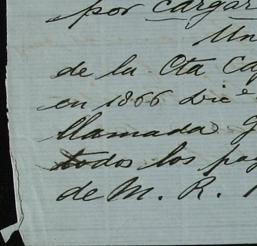 por cargar
Un
de la Cta Ca
en 1866 Dice
llamada G
todos los pag
de M. R.